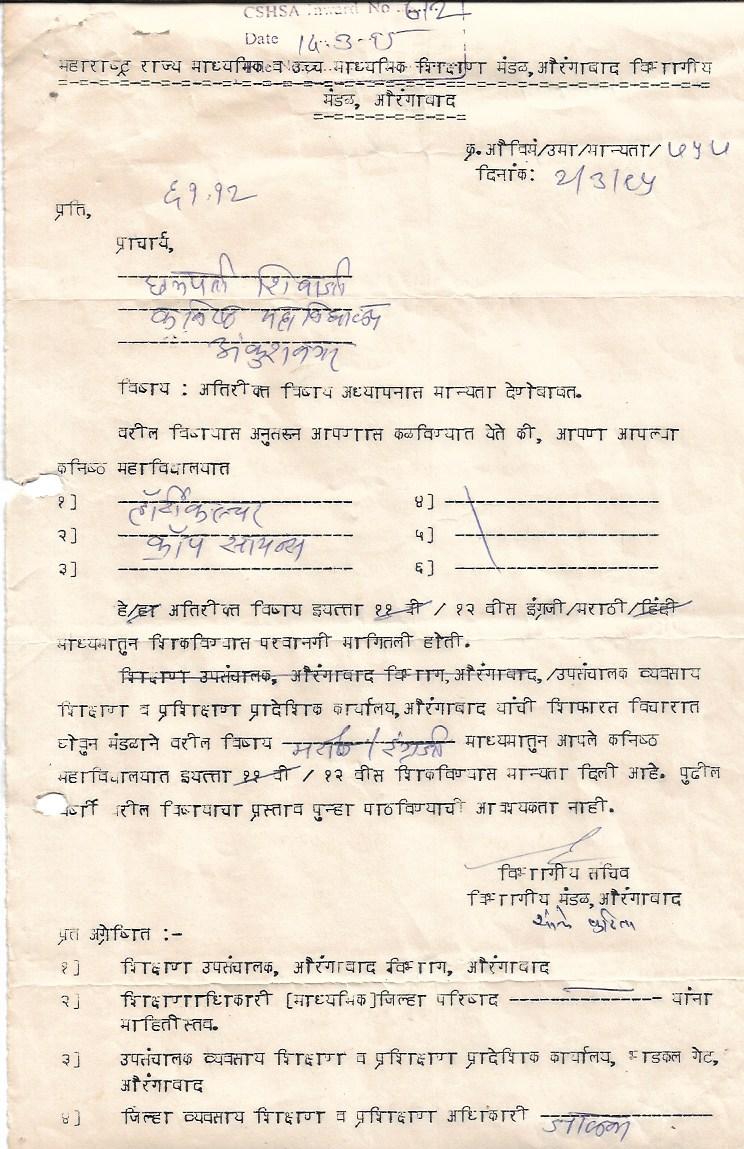 CSHSA Inward No. 612
Date 14-3-95
महाराष्ट्र राज्य माध्यमिक व उच्च माध्यमिक शिक्षाण मंडळ,औरंगाबाद विभागीय
मंडळ, औरंगाबाद
क्र.औविमं/उमा/मान्यता/ ७५५
दिनांक: 2/3/९५
६१.१२
प्रति,
प्राचार्य,
छत्रपती शिवाजी
कनिष्ठ महाविद्यालय
अंकुशनगर
विषाय : अतिरीक्त विषाय अध्यापनास मान्यता देणेबाबत.
वरील विषायास अनुसरून आपणास कळविण्यात येते की, आपण आपल्या
कनिष्ठ महाविद्यालयात
१] हॉर्टीकल्चर ४]
२] क्रॉप सायन्स ५]
३] ६]
हे/हा अतिरीक्त विषाय इयत्ता ११ वी / १२ वीस इंग्रजी/मराठी/हिंदी
माध्यमातुन शिकविण्यास परवानगी मागितली होती.
शिक्षाण उपसंचालक, औरंगाबाद विभाग,औरंगाबाद,/उपसंचालक व्यवसाय
शिक्षाण व प्रशिक्षाण प्रादेशिक कार्यालय,औरंगाबाद यांची शिफारत विचारात
घोवुन मंडळाने वरील विषाय मराठी / इंग्रजी माध्यमातुन आपले कनिष्ठ
महाविद्यालयात इयत्ता ११ वी / १२ वीस शिकविण्यास मान्यता दिली आहे. पुढील
वर्षी वरील विषायाचा प्रस्ताव पुन्हा पाठविण्याची आवश्यकता नाही.
विभागीय सचिव
विभागीय मंडळ,औरंगाबाद
प्रत अग्रेषित :-
१] शिक्षाण उपसंचालक, औरंगाबाद विभाग, औरंगाबाद
२] शिक्षाणाधिकारी [माध्यमिक]जिल्हा परिषाद यांना
माहितीस्तव.
३] उपसंचालक व्यवसाय शिक्षाण व प्रशिक्षाण प्रादेशिक कार्यालय, भाडकल गेट,
औरंगाबाद
४] जिल्हा व्यवसाय शिक्षाण व प्रशिक्षाण अधिकारी जालना